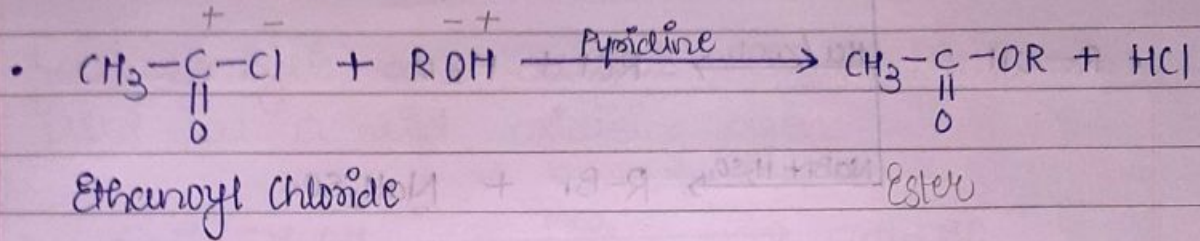 + - - +
• CH3-C-Cl + ROH Pyridine → CH3-C-OR + HCl
|| ||
O O
Ethanoyl Chloride Ester